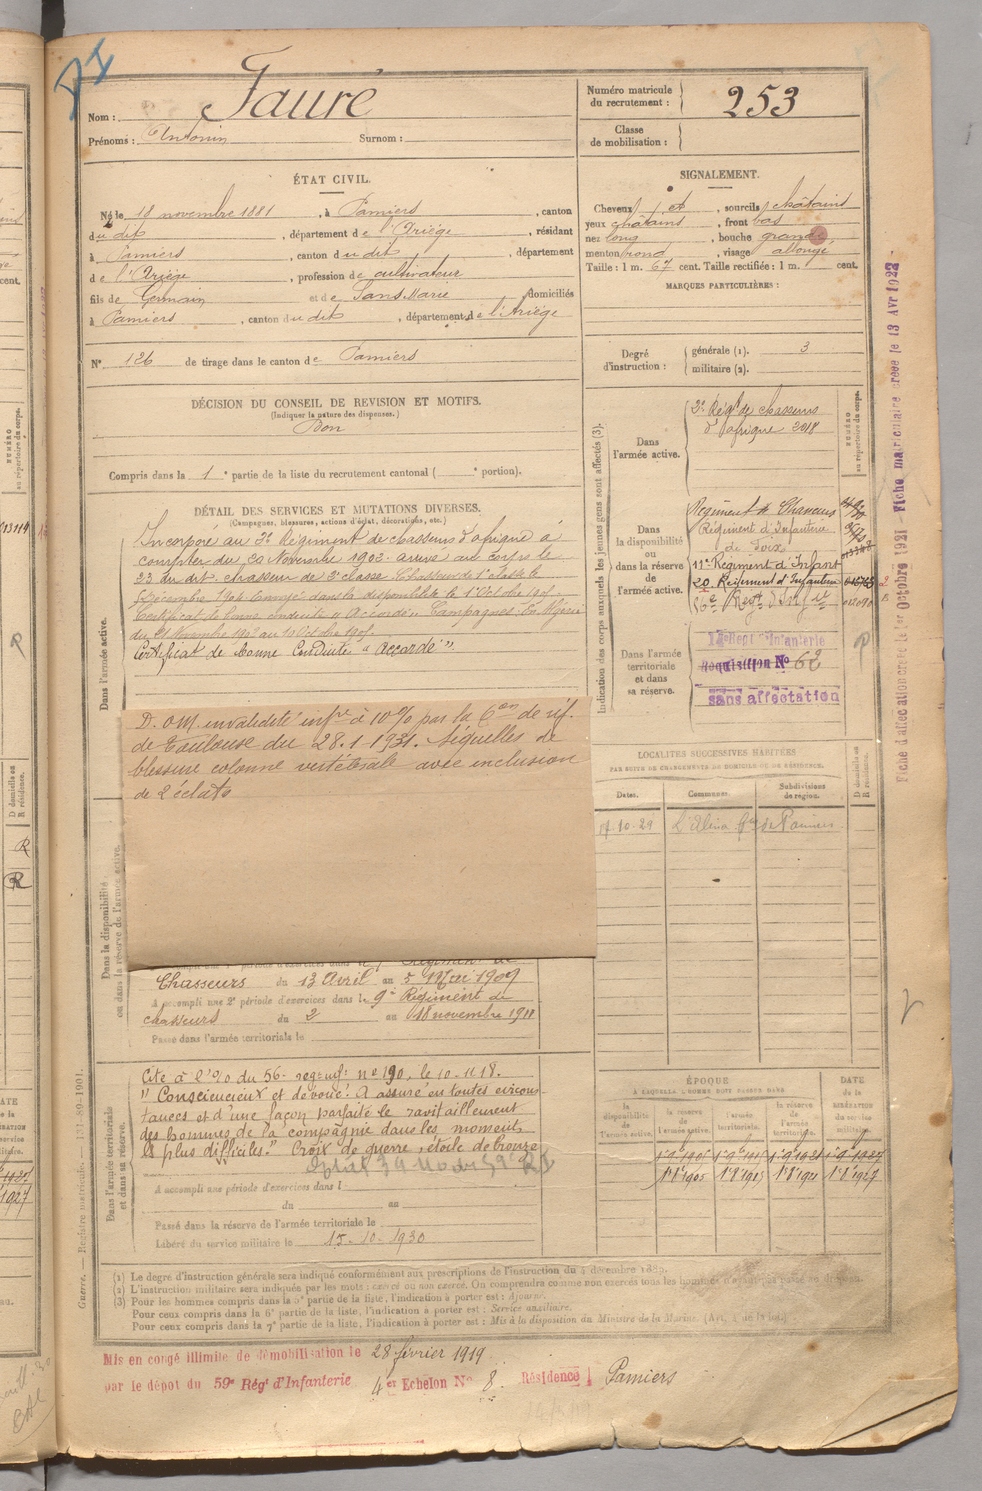 Nom : Fauré
Prénoms : Antonin Surnom :
Numéro matricule du recrutement : 253
Classe de mobilisation :
ÉTAT CIVIL.
Né le 18 novembre 1881, à Pamiers, canton
du dit, département de l'Ariège, résidant
à Pamiers, canton du dit, département
de l'Ariège, profession de cultivateur
fils de Germain et de Sans Marie domiciliés
à Pamiers, canton du dit, département de l'Ariège
N° 126 de tirage dans le canton de Pamiers
SIGNALEMENT.
Cheveux et, sourcils châtains
yeux châtains, front bas
nez long, bouche grande
menton rond, visage allongé
Taille : 1 m. 67 cent. Taille rectifiée : 1 m. cent.
MARQUES PARTICULIÈRES :
Degré d'instruction : générale (1). 3
militaire (2).
DÉCISION DU CONSEIL DE REVISION ET MOTIFS.
(Indiquer la nature des dispenses.)
Bon
Compris dans la 1e partie de la liste du recrutement cantonal ( e portion).
DÉTAIL DES SERVICES ET MUTATIONS DIVERSES.
(Campagnes, blessures, actions d'éclat, décorations, etc.)
Dans l'armée active.
Incorporé au 3e Régiment de chasseurs d'afrique à
compter du 20 Novembre 1902 arrivé au corps le
23 du dit. chasseur de 2e classe Chasseur de 1e classe le
Décembre 1904 Envoyé dans la disponibilité le 1 Octobre 190
Certificat de bonne conduite "Accordé" Campagnes: En Algérie
du 21 Novembre 1902 au 10 Octobre 190
Certificat de bonne Conduite "Accordé"
D. OM invalidité infre à 10% par la 6e on de réf.
de Toulouse du 28.1.1931. Séquelles de
blessure colonne vertébrale avec inclusion
de 2 éclats
Dans la disponibilité ou dans la réserve de l'armée active.
Régiment de
Chasseurs du 13 Avril au 5 Mai 1909
A accompli une 2e période d'exercices dans le 9e Régiment de
chasseurs du 2 au 18 novembre 1911
Passé dans l'armée territoriale le
Dans l'armée territoriale et dans sa réserve.
Cité à l'O du 56e reg inf: n° 190, le 10-11-18.
"Consciencieux et dévoué. A assuré en toutes circons-
tances et d'une façon parfaite le ravitaillement
des hommes de la compagnie dans les moments
les plus difficiles." Croix de guerre, étoile de bronze
A accompli une période d'exercices dans l
du au
Passé dans la réserve de l'armée territoriale le
Libéré du service militaire le 15-10-1930
Indication des corps auxquels les jeunes gens sont affectés (3).
NUMÉRO au répertoire du corps.
Dans l'armée active.
3e Régt de chasseurs
d'afrique 2018
Dans la disponibilité ou dans la réserve de l'armée active.
Régiment de Chasseurs
Régiment d'Infanterie
de Foix
11e Régiment d'Infant
20 Régiment d'Infanterie
Dans l'armée territoriale et dans sa réserve.
Infanterie
Réquisition N° 62
sans affectation
LOCALITÉS SUCCESSIVES HABITÉES
PAR SUITE DE CHANGEMENTS DE DOMICILE OU DE RÉSIDENCE.
Dates. Communes. Subdivisions de région. D domicile ou R résidence.
17-10-29 Pamiers
ÉPOQUE
À LAQUELLE L'HOMME DOIT PASSER DANS
la disponibilité de l'armée active. la réserve de l'armée active. l'armée territoriale. la réserve de l'armée territoriale.
DATE de la LIBÉRATION du service militaire.
Guerre. — Registre matricule. — 131-89-1901.
(1) Le degré d'instruction générale sera indiqué conformément aux prescriptions de l'instruction du 4 décembre 1889.
(2) L'instruction militaire sera indiquée par les mots : exercé ou non exercé. On comprendra comme non exercés tous les hommes
(3) Pour les hommes compris dans la 5e partie de la liste, l'indication à porter est : Ajourné.
Pour ceux compris dans la 6e partie de la liste, l'indication à porter est : Service auxiliaire.
Pour ceux compris dans la 7e partie de la liste, l'indication à porter est : Mis à la disposition du Ministre de la Marine.
Mis en congé illimité de démobilisation le 28 février 1919
par le dépot du 59e Régt d'Infanterie 4er Echelon N° 8 Résidence Pamiers
Fiche d'affectation créée le 1er Octobre 1921 - Fiche matriculaire créée le 13 Avr 1922